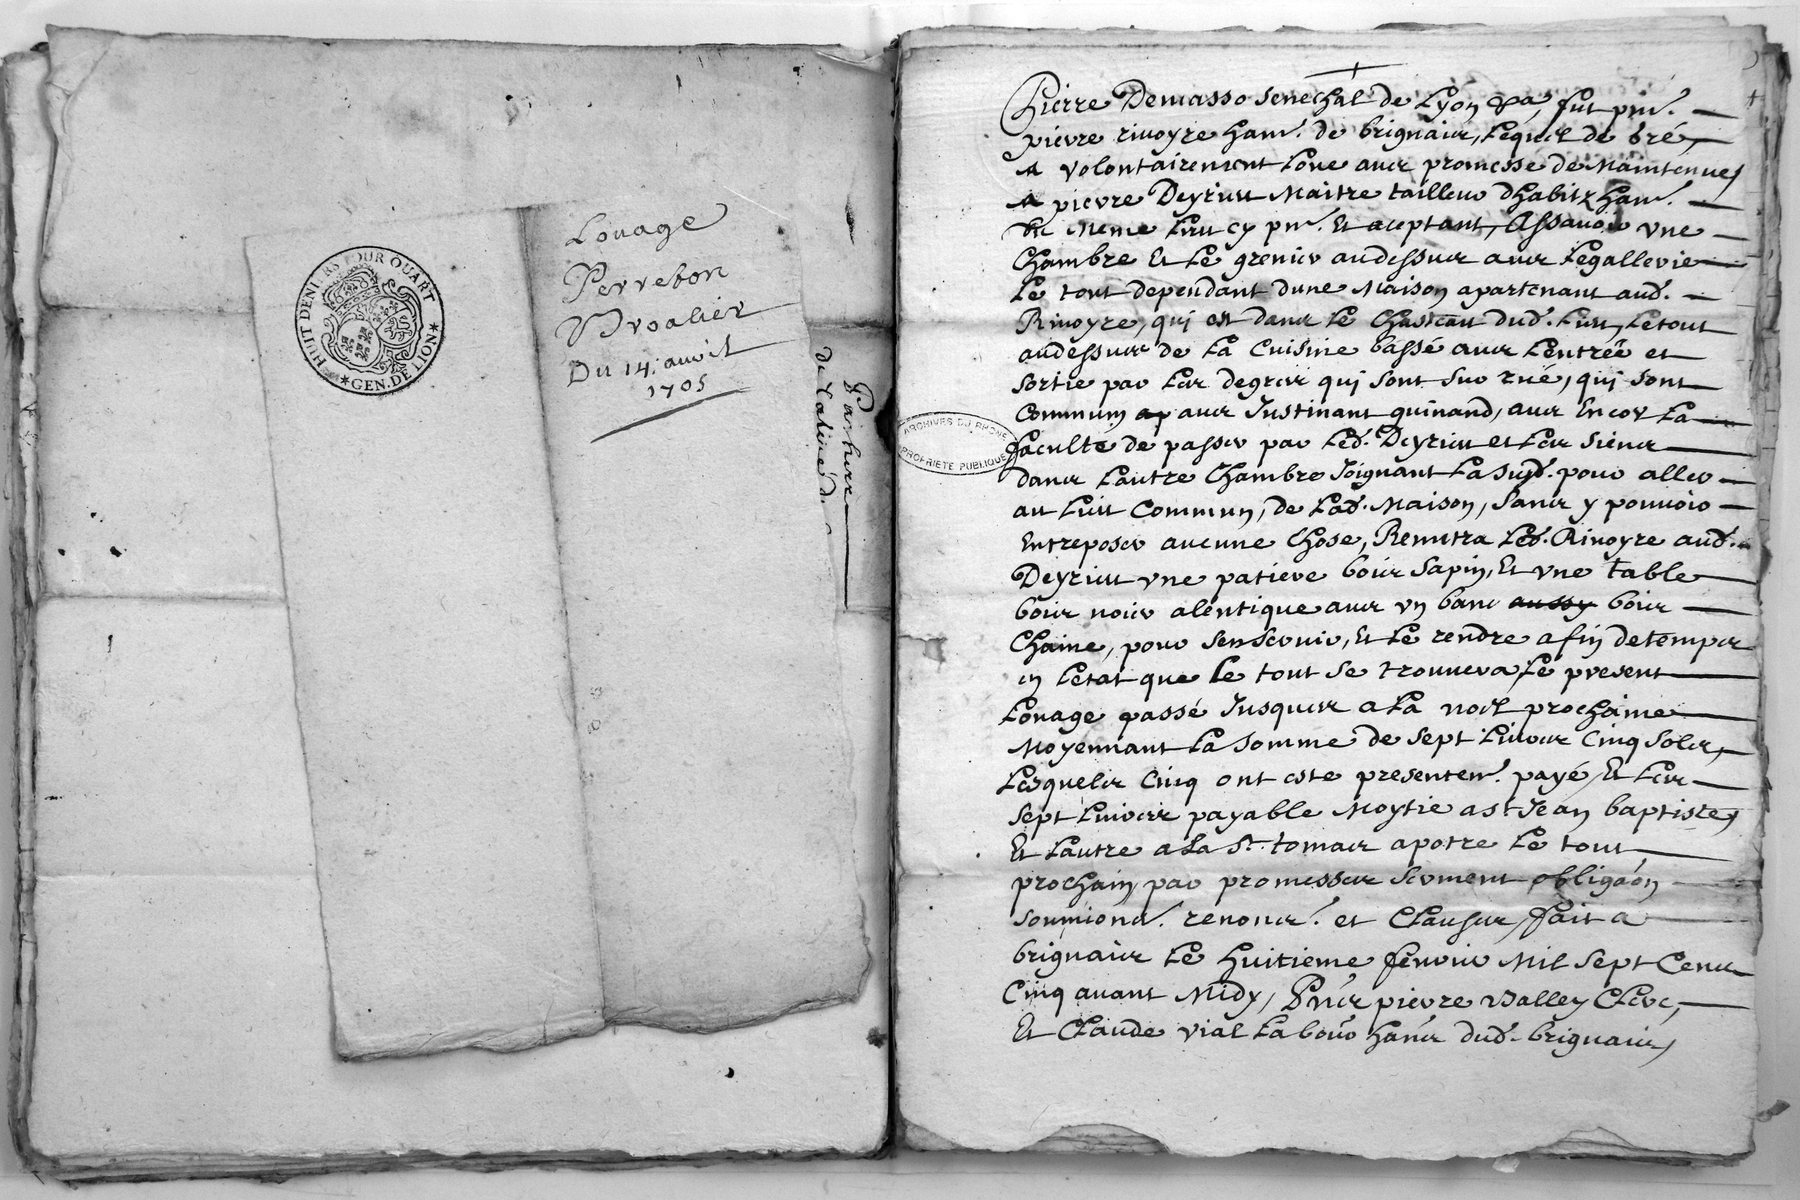 HUIT DENIERS POUR QUART
★ GEN. DE LION ★
Louage
Perrebon
Du 14. avril
1705
ARCHIVES DU RHONE
PROPRIÉTÉ PUBLIQUE
Pierre Demasso Senechal de Lyon &a, fut pnt.
pierre rivoyre hant. de brignaix, Lequel de gré,
A volontairement Loue avec promesse de Maintenue,
A pierre Deyrieu Maitre tailleur dhabitz hant.
du Meme Lieu cy pnt. Et aceptant, Assavoir une
Chambre Et Le grenier audessus avec Legallerie
Le tout dependant dune Maison apartenant aud.
Rivoyre, qui est dans Le Chasteau dud. Lieu, Letout
audessus de La Cuisine bassé avec Lentrée et
Sortie par Les degres qui sont sur rué, qui sont
Commun avec Justinant guinand, avec Encor La
faculté de passer par Led. Deyrieu et Les Siens
dans Lautre Chambre Joignant La Susd. pour aller
au Lieu Commun, de Lad. Maison, Sans y pouvoir
Entreposer aucune Chose, Remettra Led. Rivoyre aud.
Deyrieu une patiere bois Sapin, Et une table
bois noier alentique avec un banc aussy bois
Chaine, pour Senservir, Et Le rendre a fin detemps
en Letat que Le tout se trouvera, Le present
Louage passé Jusques a La noel prochaine
Moyennant La Somme de Sept Livres Cinq Sols,
Lesquels Cinq ont esté presentemt. payé, Et Les
Sept Livres payable Moytie a st Jean baptiste,
Et Lautre a La St. tomas apotre Le tout
prochain, par promesses Serment obligaon
Soumions. renoncs. et Clauses, fait a
brignais Le huitieme fevrier Mil Sept Cens
Cinq avant Midy, Pns pierre Valley Clerc,
Et Claude vial Labour hans dud. brignaix,